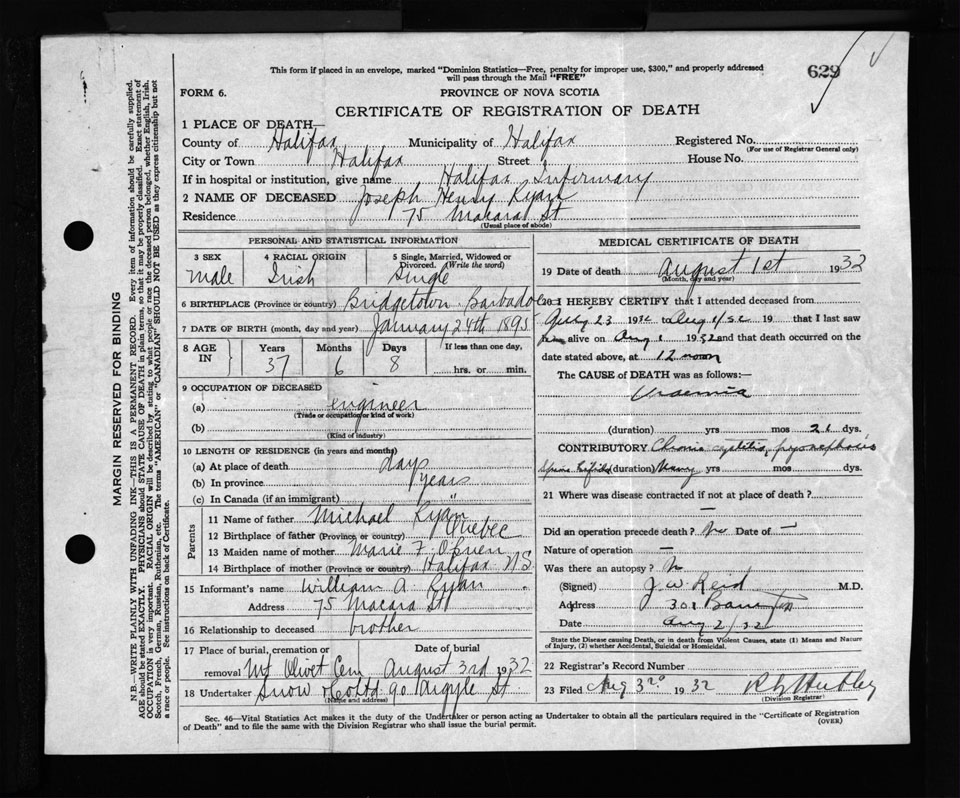 This form if placed in an envelope, marked "Dominion Statistics—Free, penalty for improper use, $300," and properly addressed
will pass through the Mail "FREE"
629
FORM 6.
PROVINCE OF NOVA SCOTIA
CERTIFICATE OF REGISTRATION OF DEATH
1 PLACE OF DEATH—
County of Halifax Municipality of Halifax Registered No.
(For use of Registrar General only)
City or Town Halifax Street House No.
If in hospital or institution, give name Halifax Infirmary
2 NAME OF DECEASED Joseph Henry Ryan
Residence 75 Macara St
(Usual place of abode)
PERSONAL AND STATISTICAL INFORMATION
3 SEX 4 RACIAL ORIGIN 5 Single, Married, Widowed or
Divorced. (Write the word)
Male Irish Single
6 BIRTHPLACE (Province or country) Bridgetown Barbadoes
7 DATE OF BIRTH (month, day and year) January 24th 1895
8 AGE IN Years Months Days If less than one day,
37 6 8 hrs. or min.
9 OCCUPATION OF DECEASED
(a) engineer
(Trade or occupation or kind of work)
(b)
(Kind of industry)
10 LENGTH OF RESIDENCE (in years and months)
(a) At place of death days
(b) In province years
(c) In Canada (if an immigrant) "
Parents
11 Name of father Michael Ryan
12 Birthplace of father (Province or country) Quebec
13 Maiden name of mother Marie F. O'Brien
14 Birthplace of mother (Province or country) Halifax NS
15 Informant's name William A. Ryan
Address 75 Macara St
16 Relationship to deceased brother
17 Place of burial, cremation or removal Date of burial
Mt Olivet Cem August 3rd 1932
18 Undertaker Snow & Co Ltd 90 Argyle St
(Name and address)
MEDICAL CERTIFICATE OF DEATH
19 Date of death August 1st 1932
(Month, day and year)
20 I HEREBY CERTIFY that I attended deceased from
July 23 1932 to Aug 1/32 19 that I last saw
him alive on Aug 1 1932 and that death occurred on the
date stated above, at 12 noon
The CAUSE of DEATH was as follows:—
Uraemia
(duration) yrs mos 21 dys.
CONTRIBUTORY Chronic cystitis, pyonephrosis
Spina Bifida (duration) Many yrs mos dys.
21 Where was disease contracted if not at place of death?
—
Did an operation precede death? No Date of —
Nature of operation —
Was there an autopsy? No
(Signed) J. W. Reid M.D.
Address 301
Date Aug 2/32
State the Disease causing Death, or in death from Violent Causes, state (1) Means and Nature
of Injury, (2) whether Accidental, Suicidal or Homicidal.
22 Registrar's Record Number
23 Filed Aug 3rd 1932
(Division Registrar)
Sec. 46—Vital Statistics Act makes it the duty of the Undertaker or person acting as Undertaker to obtain all the particulars required in the "Certificate of Registration
of Death" and to file the same with the Division Registrar who shall issue the burial permit.
(OVER)
MARGIN RESERVED FOR BINDING
N.B.—WRITE PLAINLY WITH UNFADING INK—THIS IS A PERMANENT RECORD. Every item of information should be carefully supplied.
AGE should be stated EXACTLY. PHYSICIANS should STATE CAUSE OF DEATH in plain terms, so that it may be properly classified. Exact statement of
OCCUPATION is very important. RACIAL ORIGIN will be described by stating to what people or race the deceased person belonged, whether English, Irish,
Scotch, French, German, Russian, Ruthenian, etc. The terms "AMERICAN" or "CANADIAN" SHOULD NOT BE USED as they express citizenship but not
a race or people. See instructions on back of Certificate.